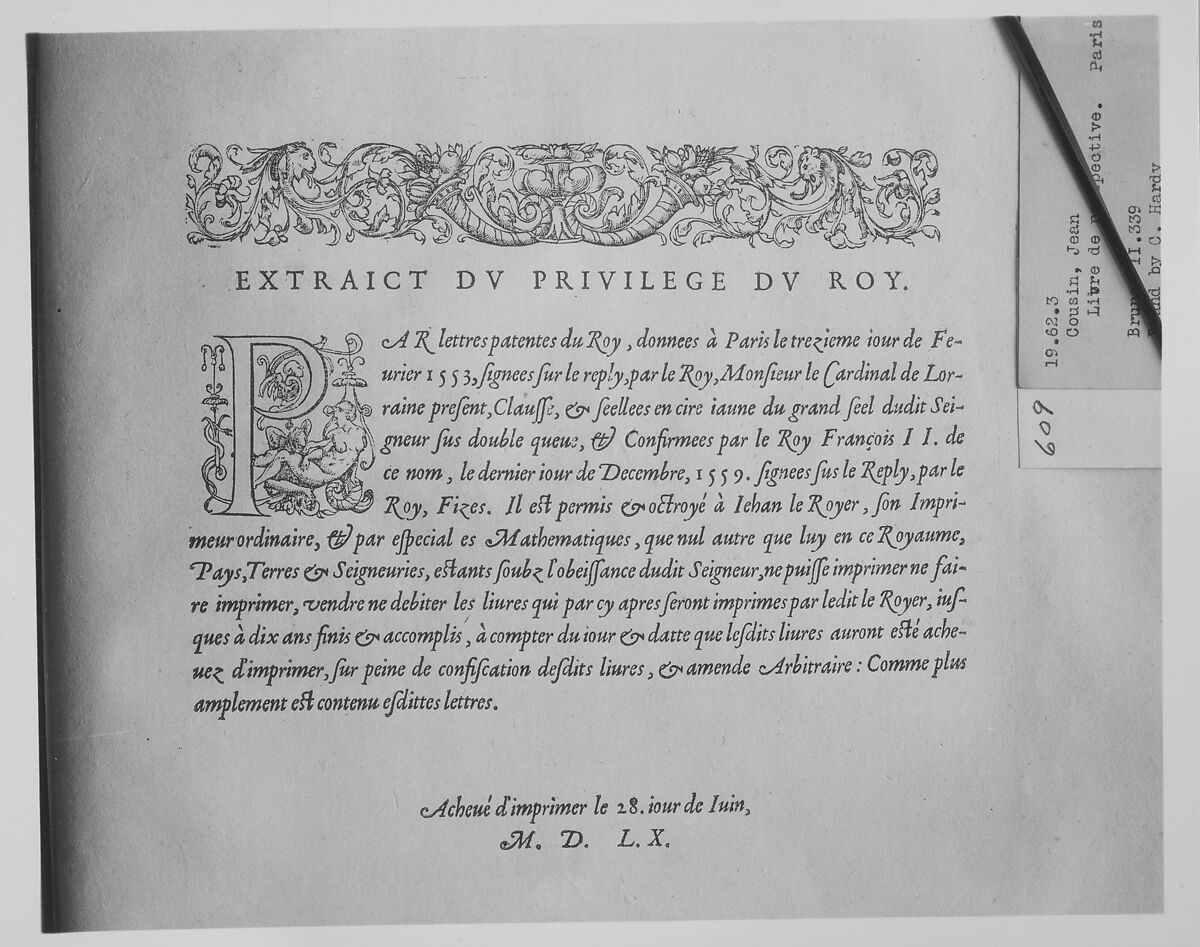 EXTRAICT DV PRIVILEGE DV ROY.
PAR lettres patentes du Roy, donnees à Paris le trezieme iour de Fe-
urier 1553, ſignees ſur le reply, par le Roy, Monſieur le Cardinal de Lor-
raine preſent, Clauſſe, & ſeellees en cire iaune du grand ſeel dudit Sei-
gneur ſus double queue, & Confirmees par le Roy François II. de
ce nom, le dernier iour de Decembre, 1559. ſignees ſus le Reply, par le
Roy, Fizes. Il eſt permis & octroyé à Iehan le Royer, ſon Impri-
meur ordinaire, & par eſpecial es Mathematiques, que nul autre que luy en ce Royaume,
Pays, Terres & Seigneuries, eſtants ſoubz l'obeiſſance dudit Seigneur, ne puiſſe imprimer ne fai-
re imprimer, vendre ne debiter les liures qui par cy apres ſeront imprimes par ledit le Royer, iuſ-
ques à dix ans finis & accomplis, à compter du iour & datte que leſdits liures auront eſté ache-
uez d'imprimer, ſur peine de confiſcation deſdits liures, & amende Arbitraire : Comme plus
amplement eſt contenu eſdittes lettres.
Acheué d'imprimer le 28. iour de Iuin,
M. D. L. X.
19.62.3
Cousin, Jean
Livre de pective. Paris
II.339
by C. Hardy
609